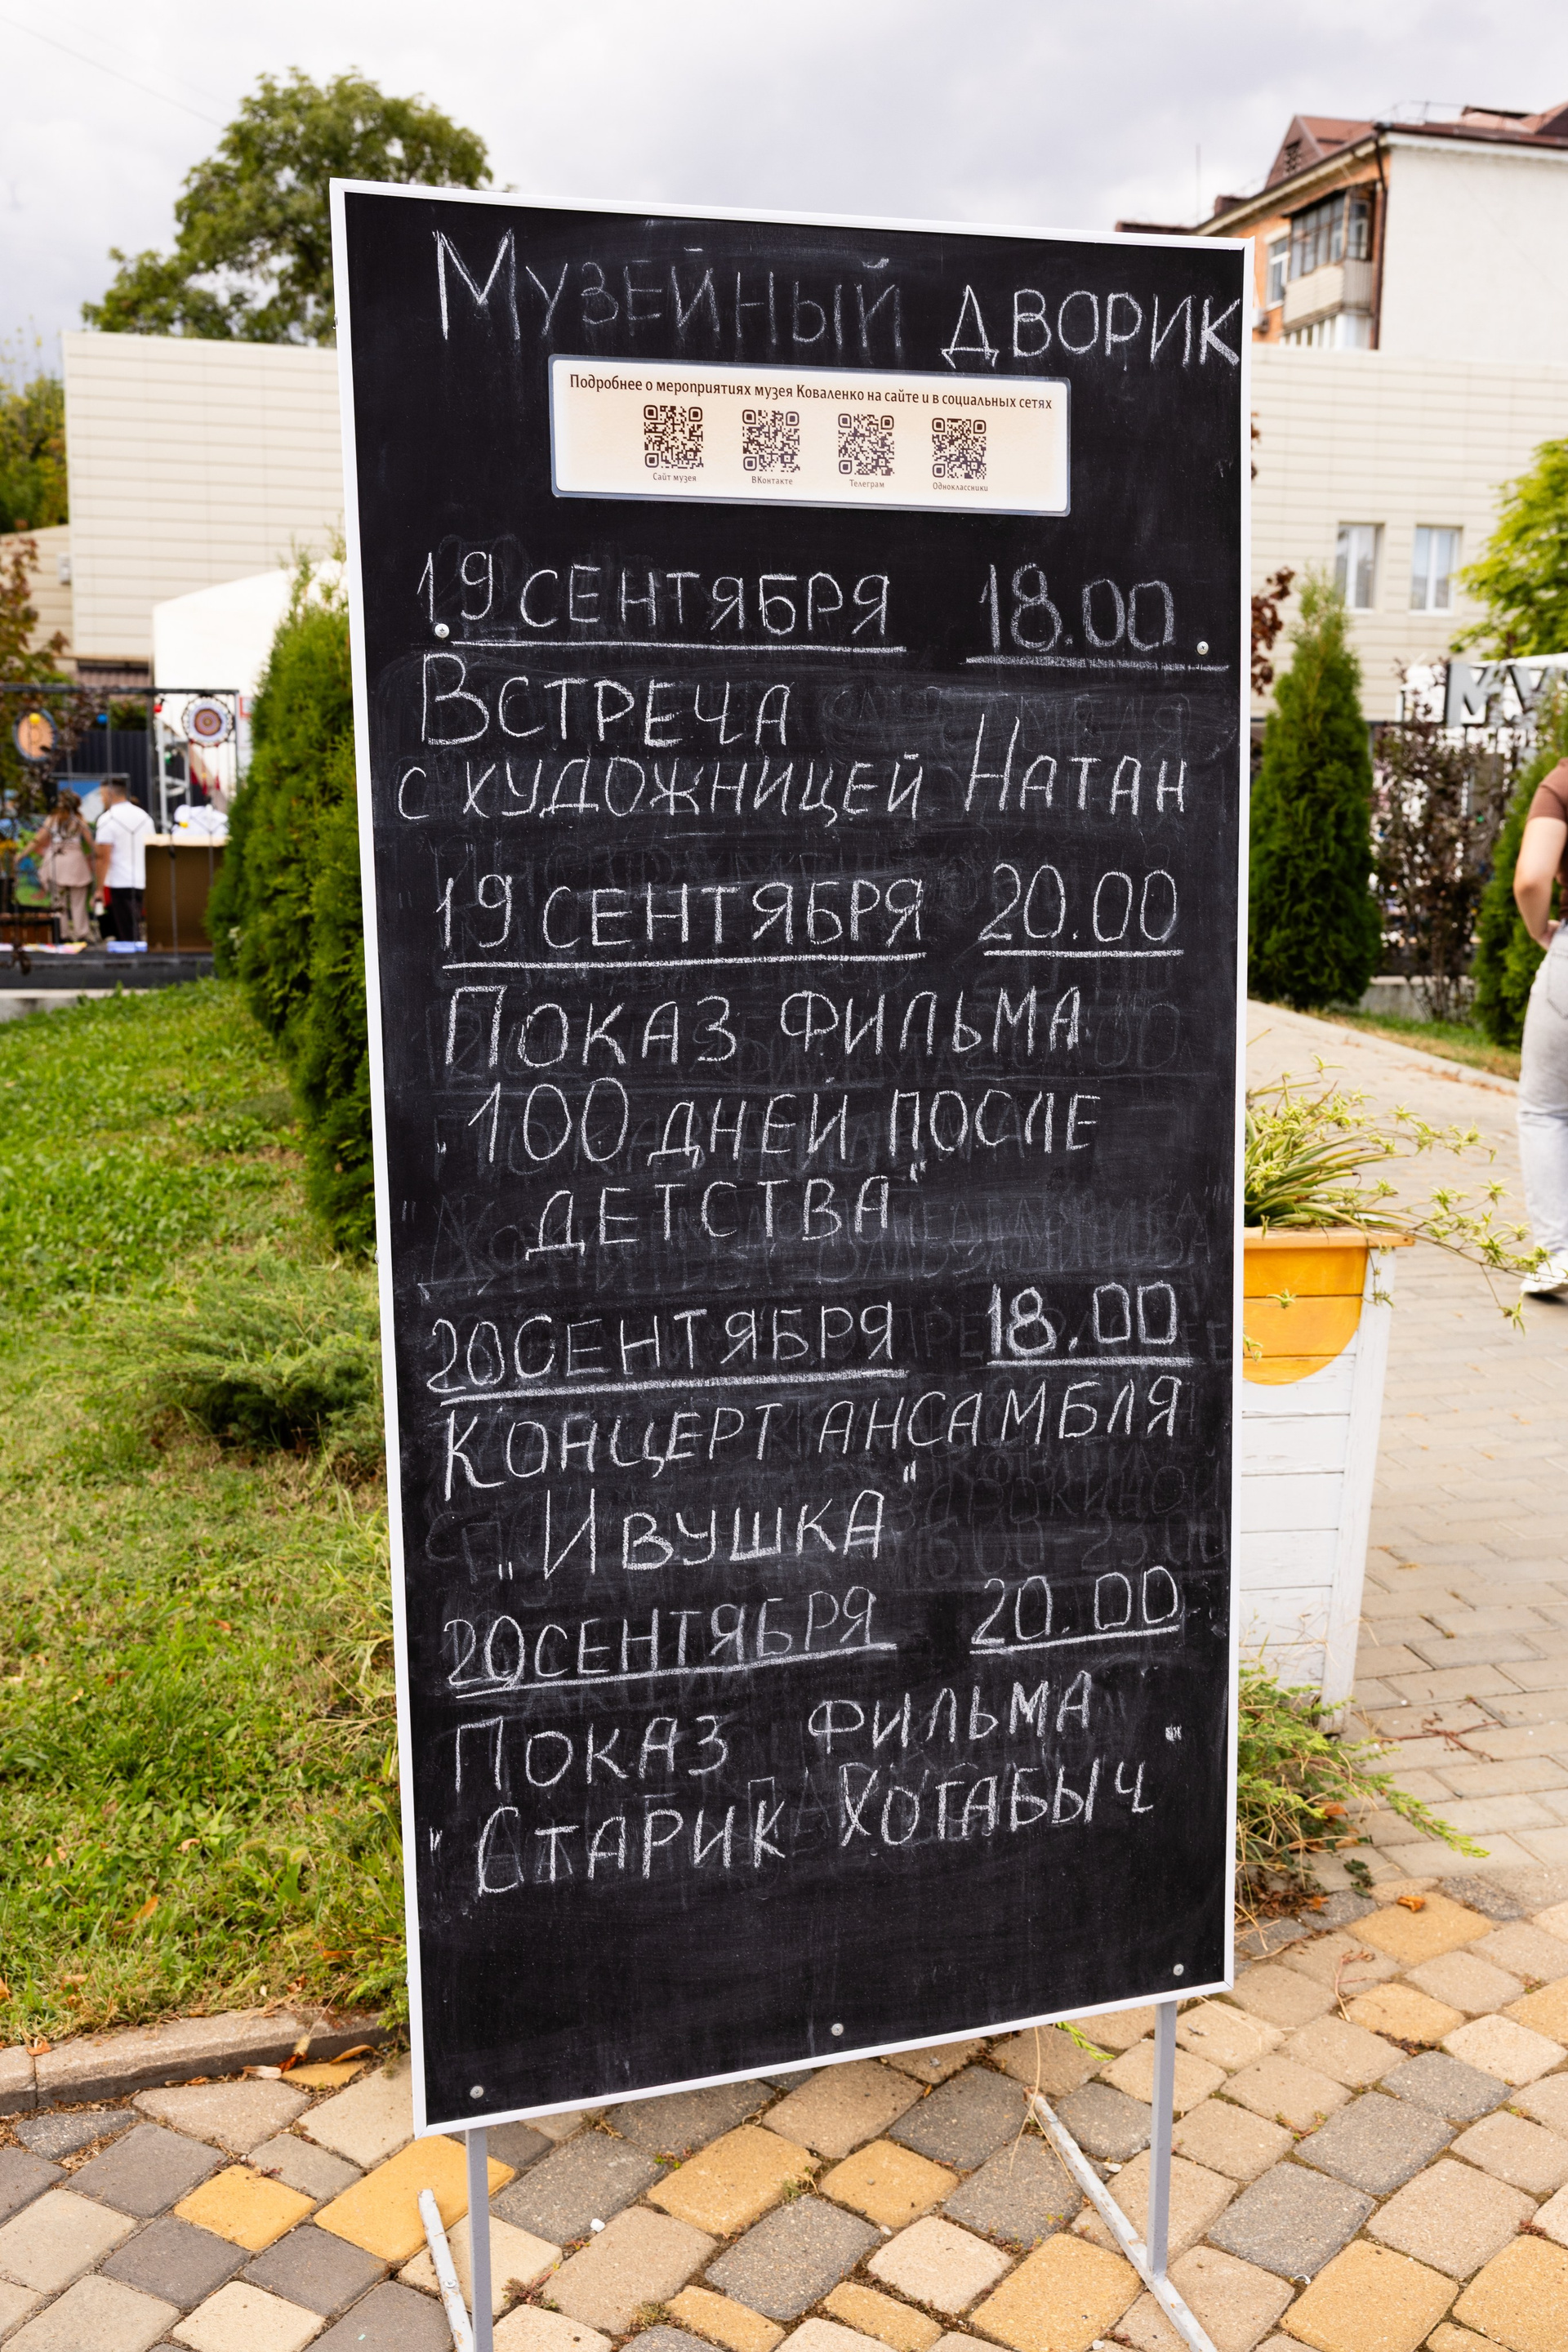 Музейный дворик
Подробнее о мероприятиях музея Коваленко на сайте и в социальных сетях
Сайт музея ВКонтакте Телеграм Одноклассники
19 сентября 18.00
Встреча
с художницей Натан
19 сентября 20.00
Показ фильма
„100 дней после
детства"
20 сентября 18.00
Концерт ансамбля
„Ивушка"
20 сентября 20.00
Показ фильма
"Старик Хотабыч"